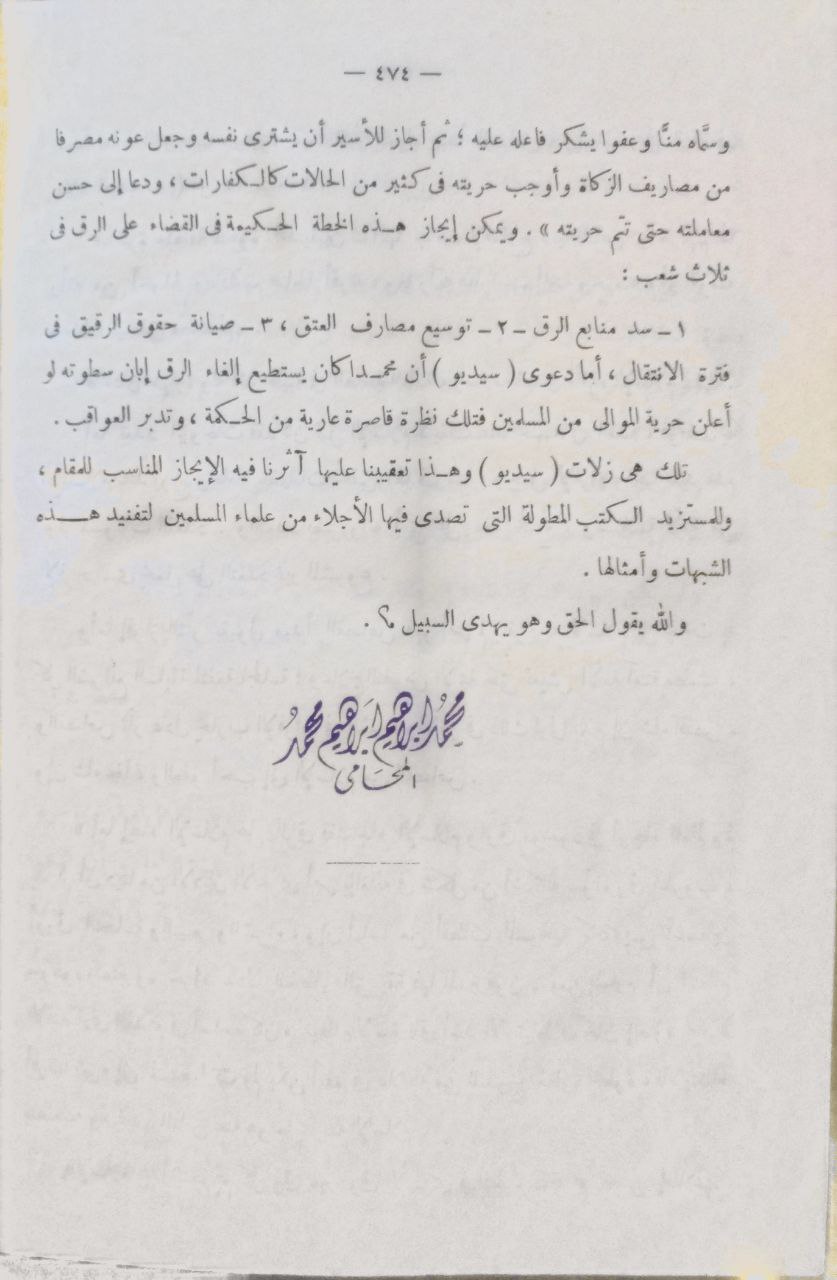 — ٤٧٤ —
وسمَّاه منًّا وعفوا يشكر فاعله عليه ؛ ثم أجاز للأسير أن يشترى نفسه وجعل عونه مصرفا
من مصاريف الزكاة وأوجب حريته فى كثير من الحالات كالكفارات ، ودعا إلى حسن
معاملته حتى تتم حريته » . ويمكن إيجاز هذه الخطة الحكيمة فى القضاء على الرق فى
ثلاث شعب :
١ ـ سد منابع الرق ـ ٢ ـ توسيع مصارف العتق ، ٣ ـ صيانة حقوق الرقيق فى
فترة الانتقال ، أما دعوى ( سيديو ) أن محمدا كان يستطيع إلغاء الرق إبان سطوته لو
أعلن حرية الموالى من المسلمين فتلك نظرة قاصرة عارية من الحكمة ، وتدبر العواقب .
تلك هى زلات ( سيديو ) وهذا تعقيبنا عليها آثرنا فيه الإيجاز المناسب للمقام ،
وللمستزيد الكتب المطولة التى تصدى فيها الأجلاء من علماء المسلمين لتفنيد هذه
الشبهات وأمثالها .
والله يقول الحق وهو يهدى السبيل ؟ .
محمد ابراهيم ابراهيم محمد
المحامى